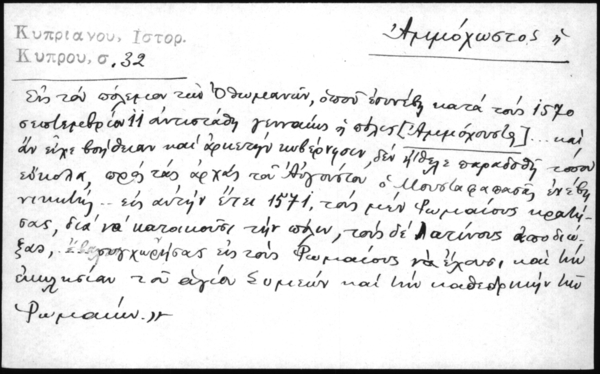 Κυπριανου, Ιστορ.
Κυπρου, σ. 32
Ἀμμόχωστος ἡ
Εἰς τὸν πόλεμον τῶν Ὀθωμανῶν, ὁποῦ ἐσυνέβη κατὰ τοὺς 1570
σεπτεμβρίου 11 ἀντιστάθη γενναίως ἡ πόλις [Ἀμμόχουστος]... καὶ
ἂν εἶχε βοήθειαν καὶ ἀρκετὴν κυβέρνησιν, δὲν ἤθελε παραδοθῆ τόσον
εὔκολα, πρὸς τὰς ἀρχὰς τοῦ Αὐγούστου ὁ Μουσταφαπασᾶς ἐνέβη
νικητής.. εἰς αὐτὴν ἔτει 1571, τοὺς μὲν Ῥωμαίους κρατή-
σας, διὰ νὰ κατοικοῦσι τὴν πόλιν, τοὺς δὲ Λατίνους ἀποδιώ-
ξας, συγχωρήσας εἰς τοὺς Ῥωμαίους νὰ ἔχουσι καὶ τὴν
ἐκκλησίαν τοῦ ἁγίου Συμεὼν καὶ τὴν καθεδρικὴν τῶν
Ῥωμαίων.»